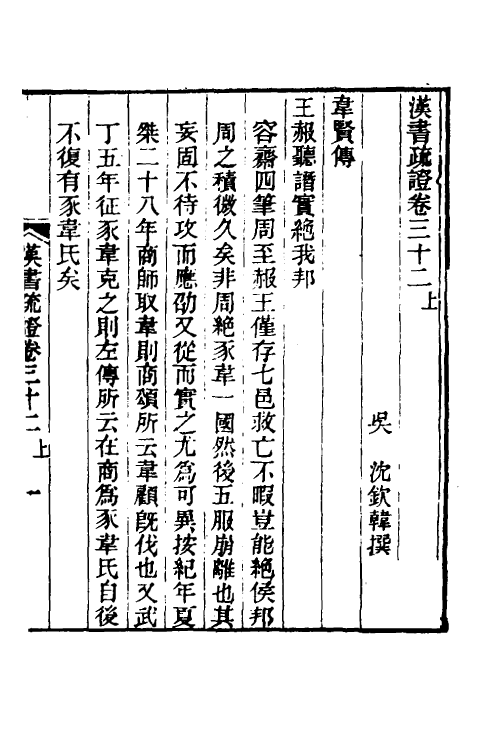 漢書疏證卷三十二上
吳 沈欽韓撰
韋賢傳
王赧聽譖實絶我邦
容齋四筆周至赧王僅存七邑救亡不暇豈能絶侯邦
周之積微久矣非周絕豕韋一國然後五服崩離也其
妄固不待攻而應劭又從而實之尤爲可異按紀年夏
桀二十八年商師取韋則商頌所云韋顧旣伐也又武
丁五年征豕韋克之則左傳所云在商爲豕韋氏自後
不復有豕韋氏矣
漢書疏證卷三十二上 一